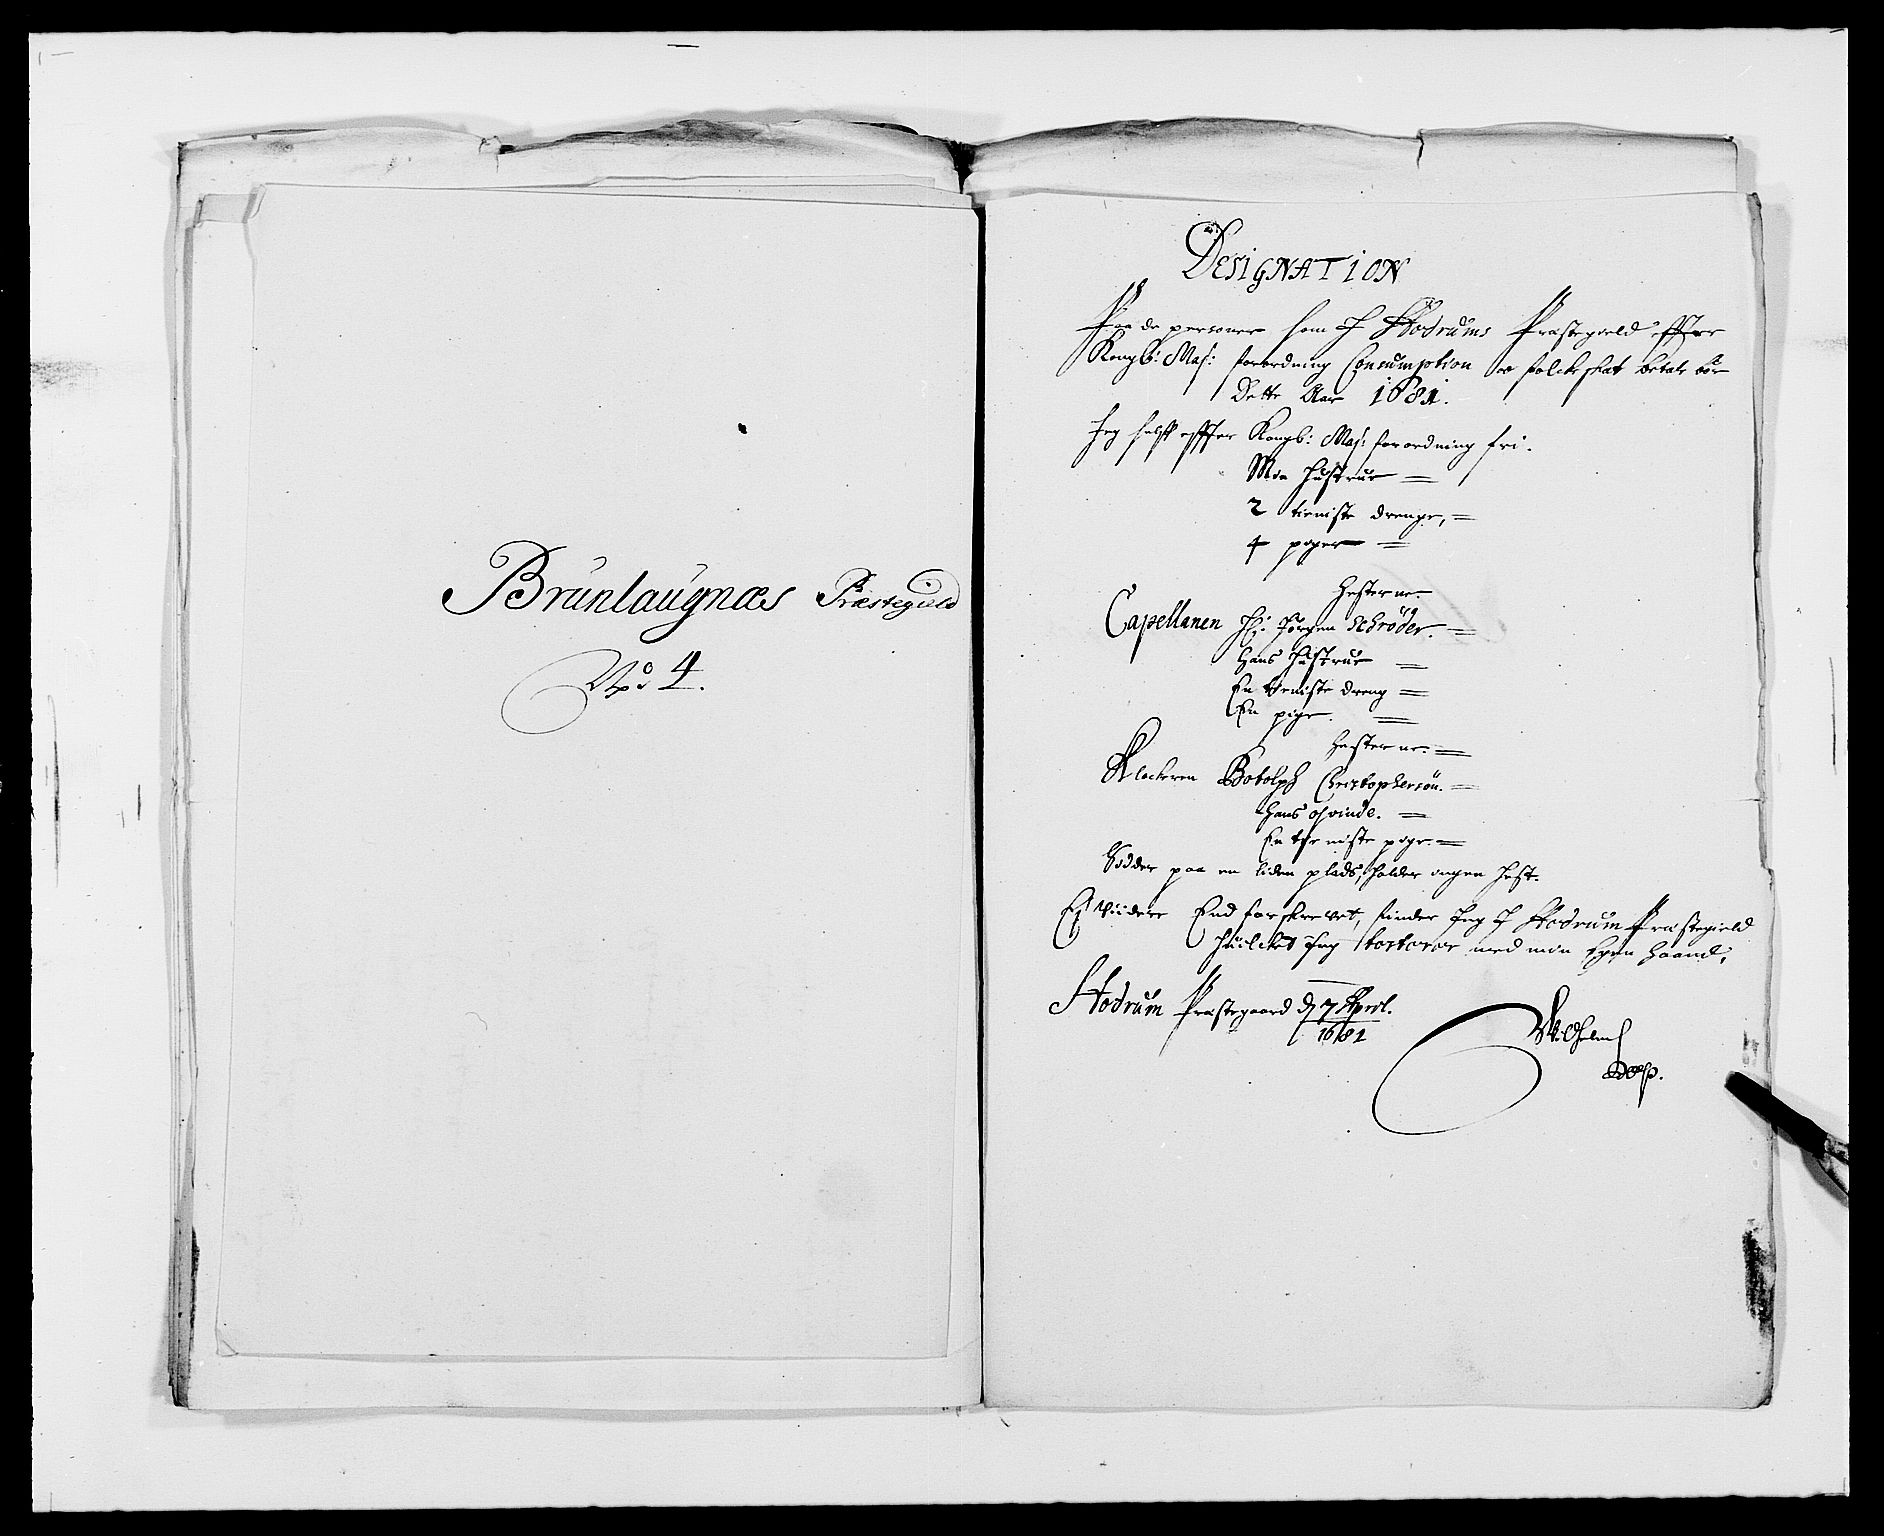 Brunlaugnæs Præstegield
No 4.
DESIGNATION
Paa de personer som J Hedrums Præstegield effter
Kongl: Maj: forordning Consumption oc folckeskat betale bør
Dette Aar 1681.
Jeg self effter Kongl: Maj: forordning fri.
Min Hustrue =
2 tieniste drenge, =
4 piger =
Hester
Capellanen Hr: Jørgen Schrøder. =
Hans Hustrue =
En tieniste dreng =
En pige. =
Hester =
Klockeren Botolph Christophersøn. =
Hans qvinde. =
En tieniste pige. =
Sidder paa en liden plads, holder ingen Hest.
Ej viidere End forskrevet, finder Jeg J Hedrum Præstegield
Huilcket Jeg med min Egen Haand,
Hedrum Præstegaard d 7 April.
1681
Wilhelm